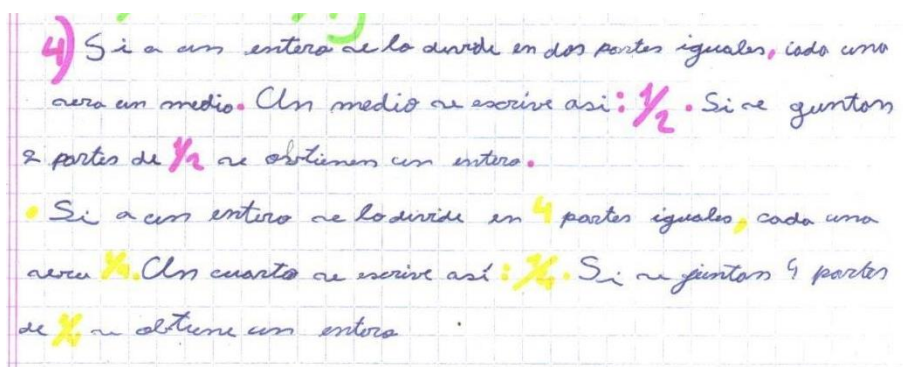 4) Si a un entero se lo divide en dos partes iguales, cada una
sera un medio. Un medio se escrive asi: 1/2. Si se guntan
2 partes de 1/2 se obtienen un entero.
• Si a un entero se lo divide en 4 partes iguales, cada una
sera 1/4. Un cuarto se escrive así: 1/4. Si se juntan 4 partes
de 1/4 se obtiene un entero